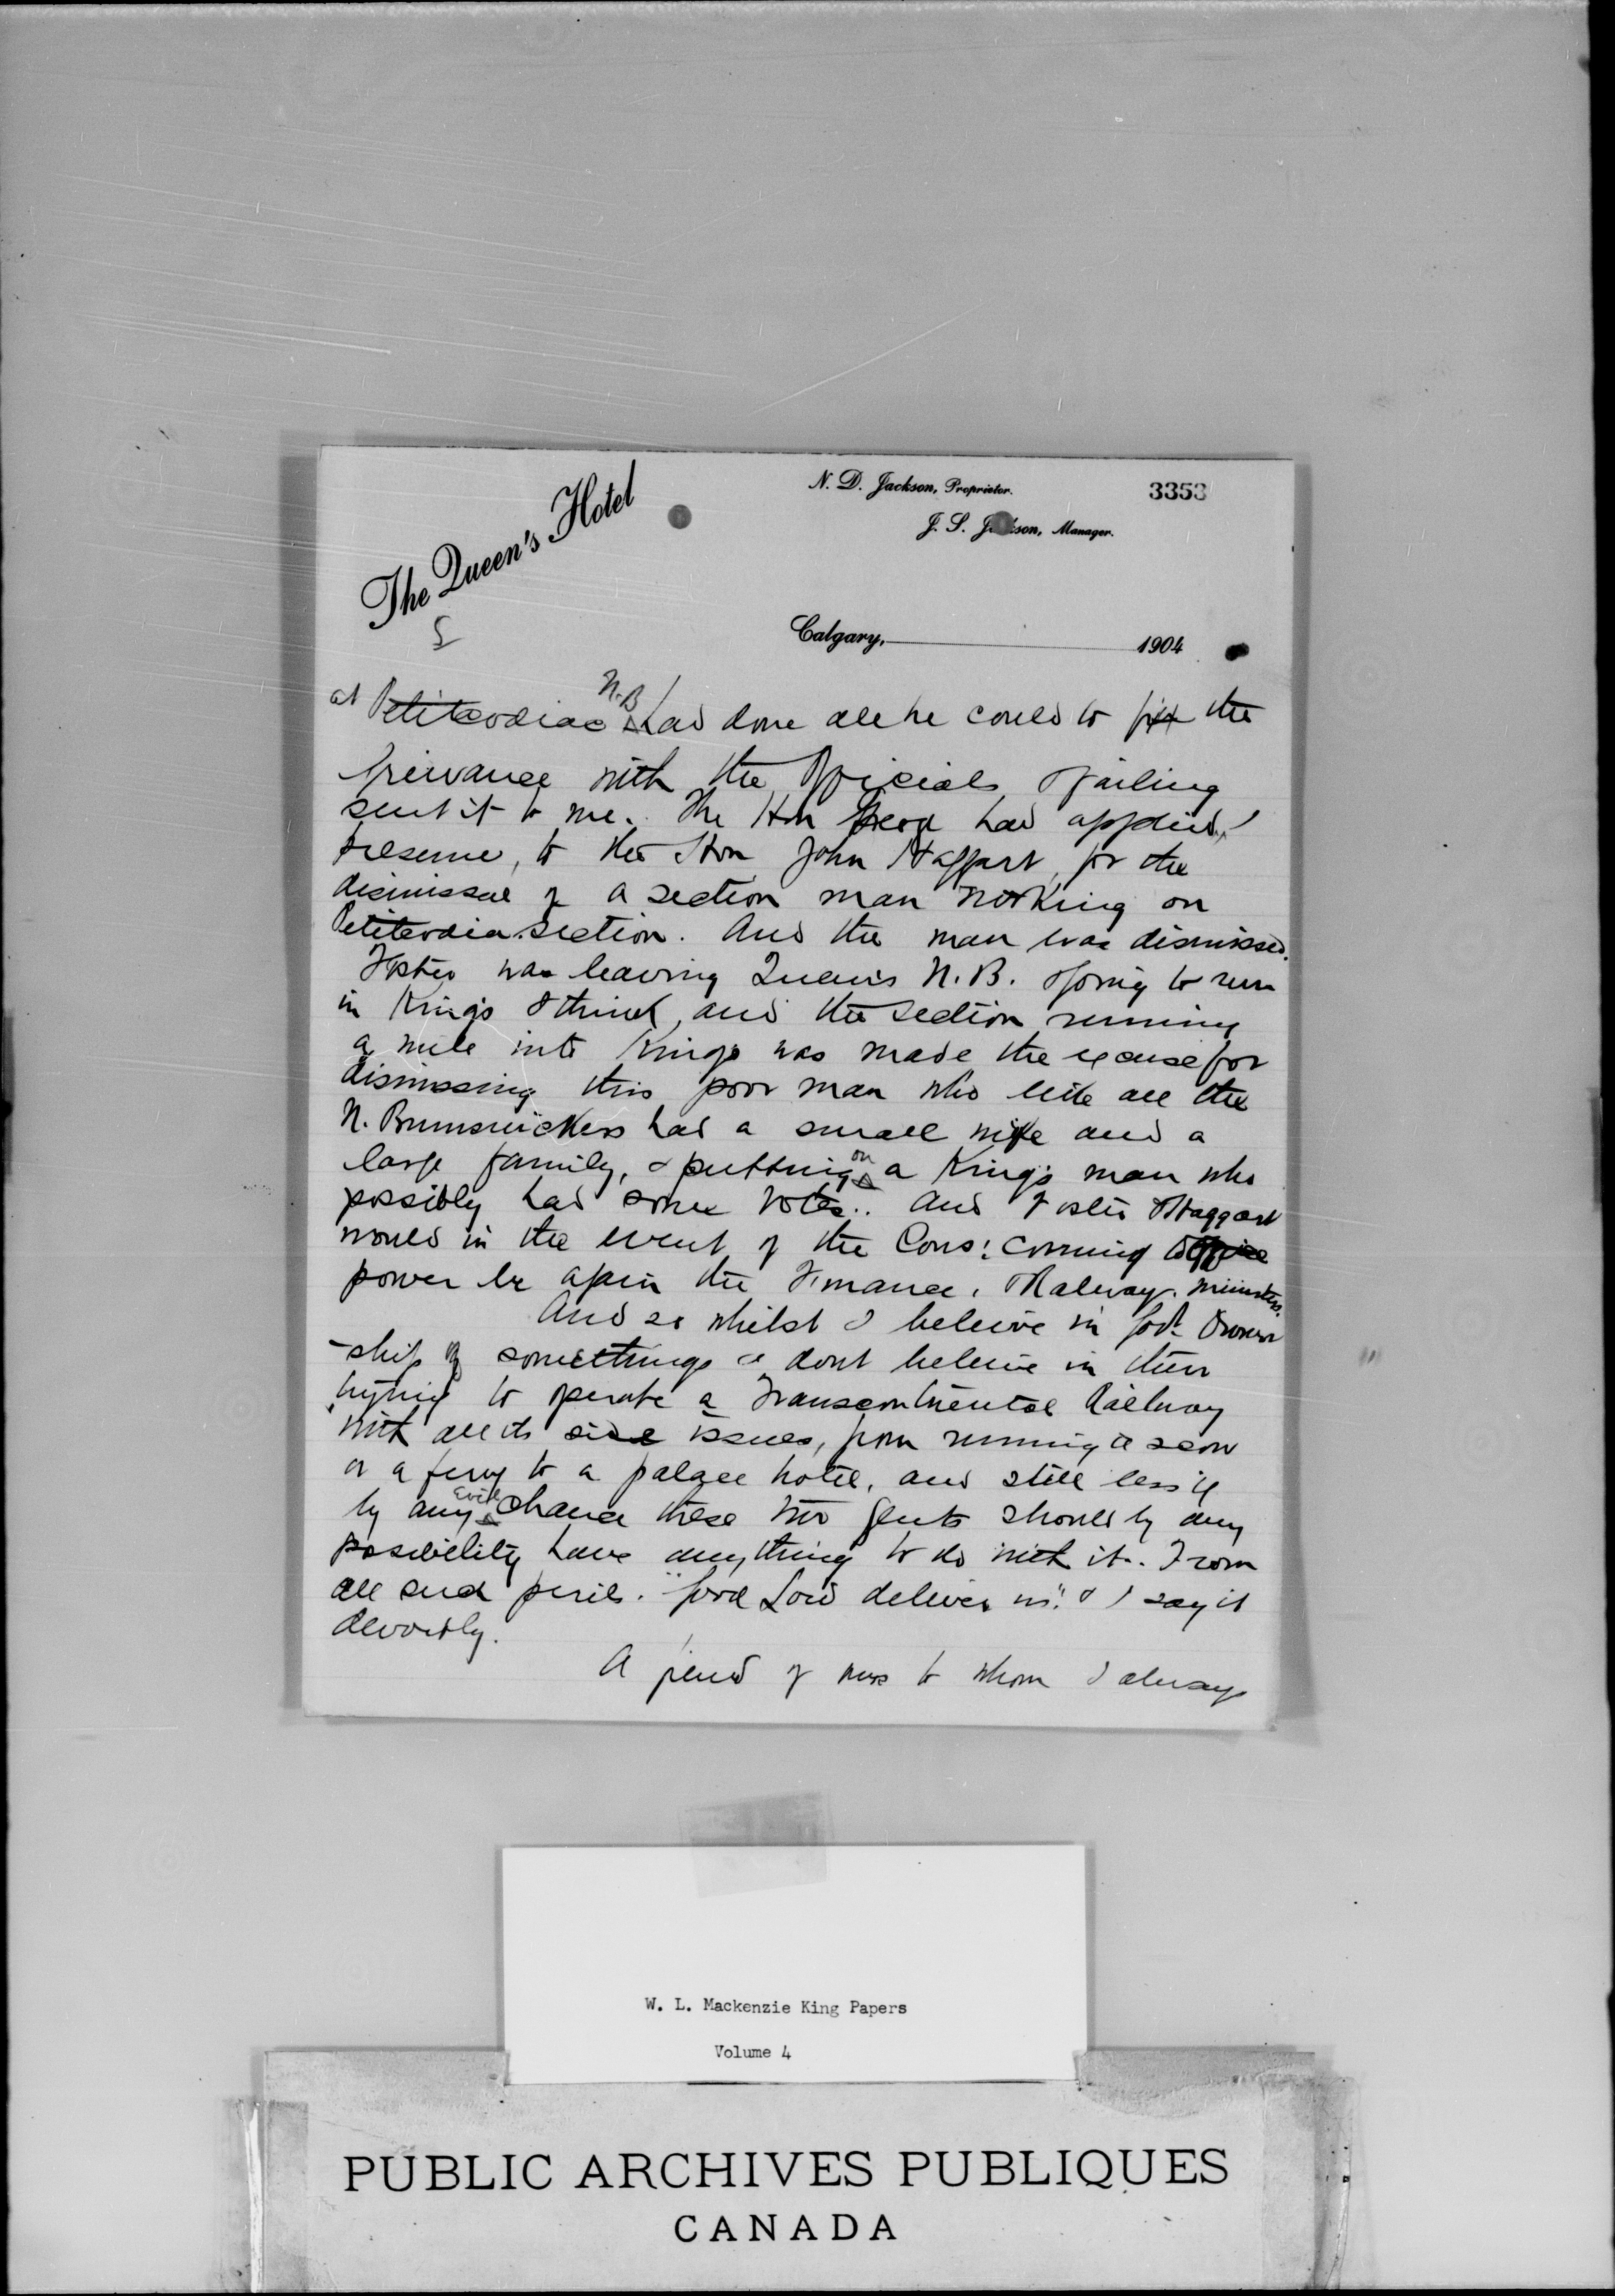 The Queen's Hotel
N. D. Jackson, Proprietor.
3353
J. S. Jackson, Manager.
5
Calgary, 1904
at Petitcodiac N.B. had done all he could to fix the
Grievance with the Officials & failing
sent it to me. The Hon had applied, I
presume, to the Hon John Haggart, for the
dismissal of a section man working on
Petitcodia section. And the man was dismissed.
Foster was leaving Queens N.B. & going to run
in Kings I think, and the section running
a mile into Kings was made the excuse for
dismissing this poor man who like all the
N. Brunswickers had a small wife and a
large family, & putting on a Kings man who
possibly had some votes. And Foster & Haggart
would in the event of the Cons: coming to office
power be again the Finance, & Railway. Ministers.
And so whilst I beleive in Govt Owner
-ship of somethings I dont beleive in their
trying to operate a Transcontinental Railway
with all its side issues, from running a scow
or a ferry to a palace hotel, and still less if
by any Evil chance these two gents should by any
possibility have anything to do with it. From
all such perils. "Good Lord deliver us." & I say it
devoutly.
A friend of mine to whom I always
W. L. Mackenzie King Papers
Volume 4
PUBLIC ARCHIVES PUBLIQUES
CANADA